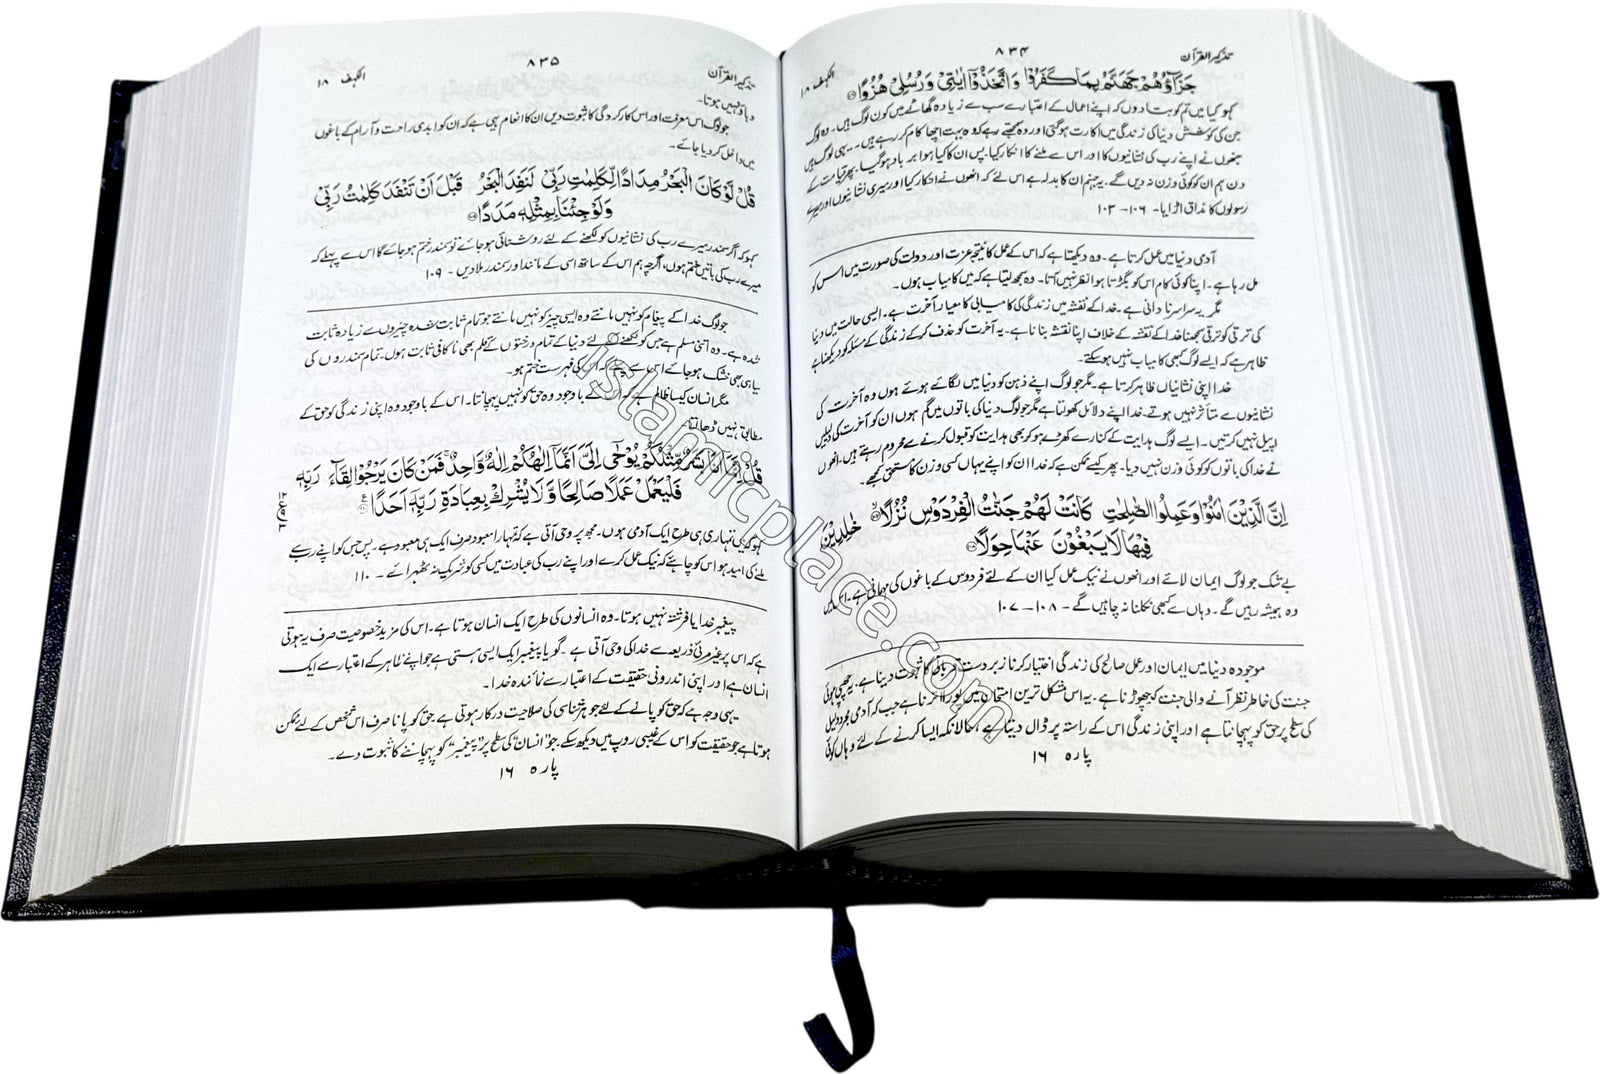 تذکیر القرآن
۸۳۴
الکہف ۱۸
جَزَآؤُهُمْ جَهَنَّمُ بِمَا كَفَرُوْا وَاتَّخَذُوْٓا اٰيٰتِيْ وَرُسُلِيْ هُزُوًا
کہو کیا میں تم کو بتا دوں کہ اپنے اعمال کے اعتبار سے سب سے زیادہ گھاٹے میں کون لوگ ہیں۔ وہ لوگ
جن کی کوشش دنیا کی زندگی میں اکارت ہوگئی اور وہ سمجھتے رہے کہ وہ بہت اچھا کام کر رہے ہیں۔ یہی لوگ ہیں
جنھوں نے اپنے رب کی نشانیوں کا اور اس سے ملنے کا انکار کیا۔ پس ان کا کیا ہوا برباد ہوگیا۔ پھر قیامت کے
دن ہم ان کو کوئی وزن نہ دیں گے۔ یہ جہنم ان کا بدلہ ہے اس لئے کہ انھوں نے انکار کیا اور میری نشانیوں اور میرے
رسولوں کا مذاق اڑایا۔ ۱۰۶—۱۰۳
آدمی دنیا میں عمل کرتا ہے۔ وہ دیکھتا ہے کہ اس کے عمل کا نتیجہ عزت اور دولت کی صورت میں اس کو
مل رہا ہے۔ اپنا کوئی کام اس کو بگڑتا ہوا نظر نہیں آتا۔ وہ سمجھ لیتا ہے کہ میں کامیاب ہوں۔
مگر یہ سراسر نادانی ہے۔ خدا کے نقشہ میں زندگی کی کامیابی کا معیار آخرت ہے۔ ایسی حالت میں دنیا
کی ترقی کو ترقی سمجھنا خدا کے نقشہ کے خلاف اپنا نقشہ بنانا ہے۔ یہ آخرت کو حذف کرکے زندگی کے مسئلہ کو دیکھنا ہے
ظاہر ہے کہ ایسے لوگ کبھی کامیاب نہیں ہوسکتے۔
خدا اپنی نشانیاں ظاہر کرتا ہے۔ مگر جو لوگ اپنے ذہن کو دنیا میں لگائے ہوئے ہوں وہ آخرت کی
نشانیوں سے متاثر نہیں ہوتے۔ خدا اپنے دلائل کھولتا ہے مگر جو لوگ دنیا کی باتوں میں گم ہوں ان کو آخرت کی دلیلیں
اپیل نہیں کرتیں۔ ایسے لوگ ہدایت کے کنارے کھڑے ہو کر بھی ہدایت کو قبول کرنے سے محروم رہتے ہیں۔ انھوں
نے خدا کی باتوں کو کوئی وزن نہیں دیا۔ پھر کیسے ممکن ہے کہ خدا ان کو اپنے یہاں کسی وزن کا مستحق سمجھے۔
اِنَّ الَّذِيْنَ اٰمَنُوْا وَعَمِلُوا الصّٰلِحٰتِ كَانَتْ لَهُمْ جَنّٰتُ الْفِرْدَوْسِ نُزُلًا خٰلِدِيْنَ
فِيْهَا لَا يَبْغُوْنَ عَنْهَا حِوَلًا
بے شک جو لوگ ایمان لائے اور انھوں نے نیک عمل کیا ان کے لئے فردوس کے باغوں کی مہمانی ہے۔ اس میں
وہ ہمیشہ رہیں گے۔ وہاں سے کبھی نکلنا نہ چاہیں گے۔ ۱۰۸—۱۰۷
موجودہ دنیا میں ایمان اور عمل صالح کی زندگی اختیار کرنا زبردست قربانی کا ثبوت دینا ہے۔ یہ چھپی ہوئی
جنت کی خاطر نظر آنے والی جنت کو چھوڑنا ہے۔ یہ اس مشکل ترین امتحان میں پورا اترنا ہے جب کہ آدمی مجرد دلیل
کی سطح پر حق کو پہچانتا ہے اور اپنی زندگی اس کے راستہ پر ڈال دیتا ہے، حالانکہ ایسا کرنے کے لئے وہاں کوئی
پارہ ۱۶
تذکیر القرآن
۸۳۵
الکہف ۱۸
دباؤ نہیں ہوتا۔
جو لوگ اس معرفت اور اس کارکردگی کا ثبوت دیں ان کا انعام یہی ہے کہ ان کو ابدی راحت و آرام کے باغوں
میں داخل کر دیا جائے۔
قُلْ لَّوْ كَانَ الْبَحْرُ مِدَادًا لِّكَلِمٰتِ رَبِّيْ لَنَفِدَ الْبَحْرُ قَبْلَ اَنْ تَنْفَدَ كَلِمٰتُ رَبِّيْ
وَلَوْ جِئْنَا بِمِثْلِهٖ مَدَدًا
کہو کہ اگر سمندر میرے رب کی نشانیوں کو لکھنے کے لئے روشنائی ہوجائے تو سمندر ختم ہوجائے گا اس سے پہلے کہ
میرے رب کی باتیں ختم ہوں، اگرچہ ہم اس کے ساتھ اسی کے مانند اور سمندر ملا دیں۔ ۱۰۹
جو لوگ خدا کے پیغام کو نہیں مانتے وہ ایسی چیز کو نہیں مانتے جو تمام ثابت شدہ چیزوں سے زیادہ ثابت
شدہ ہے۔ وہ اتنی مسلم ہے جس کو لکھنے کے لئے دنیا کے تمام درختوں کے قلم بھی ناکافی ثابت ہوں۔ تمام سمندروں کی
سیاہی بھی خشک ہوجائے اس سے پہلے کہ اس کی فہرست ختم ہو۔
مگر انسان کیسا ظالم ہے کہ اس کے باوجود وہ حق کو نہیں پہچانتا۔ اس کے باوجود وہ اپنی زندگی کو حق کے
مطابق نہیں ڈھالتا۔
قُلْ اِنَّمَآ اَنَا بَشَرٌ مِّثْلُكُمْ يُوْحٰٓى اِلَيَّ اَنَّمَآ اِلٰهُكُمْ اِلٰهٌ وَّاحِدٌ فَمَنْ كَانَ يَرْجُوْا لِقَآءَ رَبِّهٖ
فَلْيَعْمَلْ عَمَلًا صَالِحًا وَّلَا يُشْرِكْ بِعِبَادَةِ رَبِّهٖٓ اَحَدًا
کہو کہ میں تمہاری ہی طرح ایک آدمی ہوں۔ مجھ پر وحی آتی ہے کہ تمہارا معبود صرف ایک ہی معبود ہے۔ پس جس کو اپنے رب سے
ملنے کی امید ہو اس کو چاہئے کہ نیک عمل کرے اور اپنے رب کی عبادت میں کسی کو شریک نہ ٹھہرائے۔ ۱۱۰
پیغمبر خدا یا فرشتہ نہیں ہوتا۔ وہ انسانوں کی طرح ایک انسان ہوتا ہے۔ اس کی مزید خصوصیت صرف یہ ہوتی
ہے کہ اس پر غیر مرئی ذریعہ سے خدا کی وحی آتی ہے۔ گویا پیغمبر ایک ایسی ہستی ہے جو اپنے ظاہر کے اعتبار سے ایک
انسان ہے اور اپنی اندرونی حقیقت کے اعتبار سے نمائندہ خدا۔
یہی وجہ ہے کہ حق کو پانے کے لئے جوہر شناسی کی صلاحیت درکار ہوتی ہے۔ حق کو پانا صرف اس شخص کے لئے ممکن
ہوتا ہے جو حقیقت کو اس کے غیبی روپ میں دیکھ سکے۔ جو "انسان" کی سطح پر "پیغمبر" کو پہچاننے کا ثبوت دے۔
پارہ ۱۶
islamicplace.com